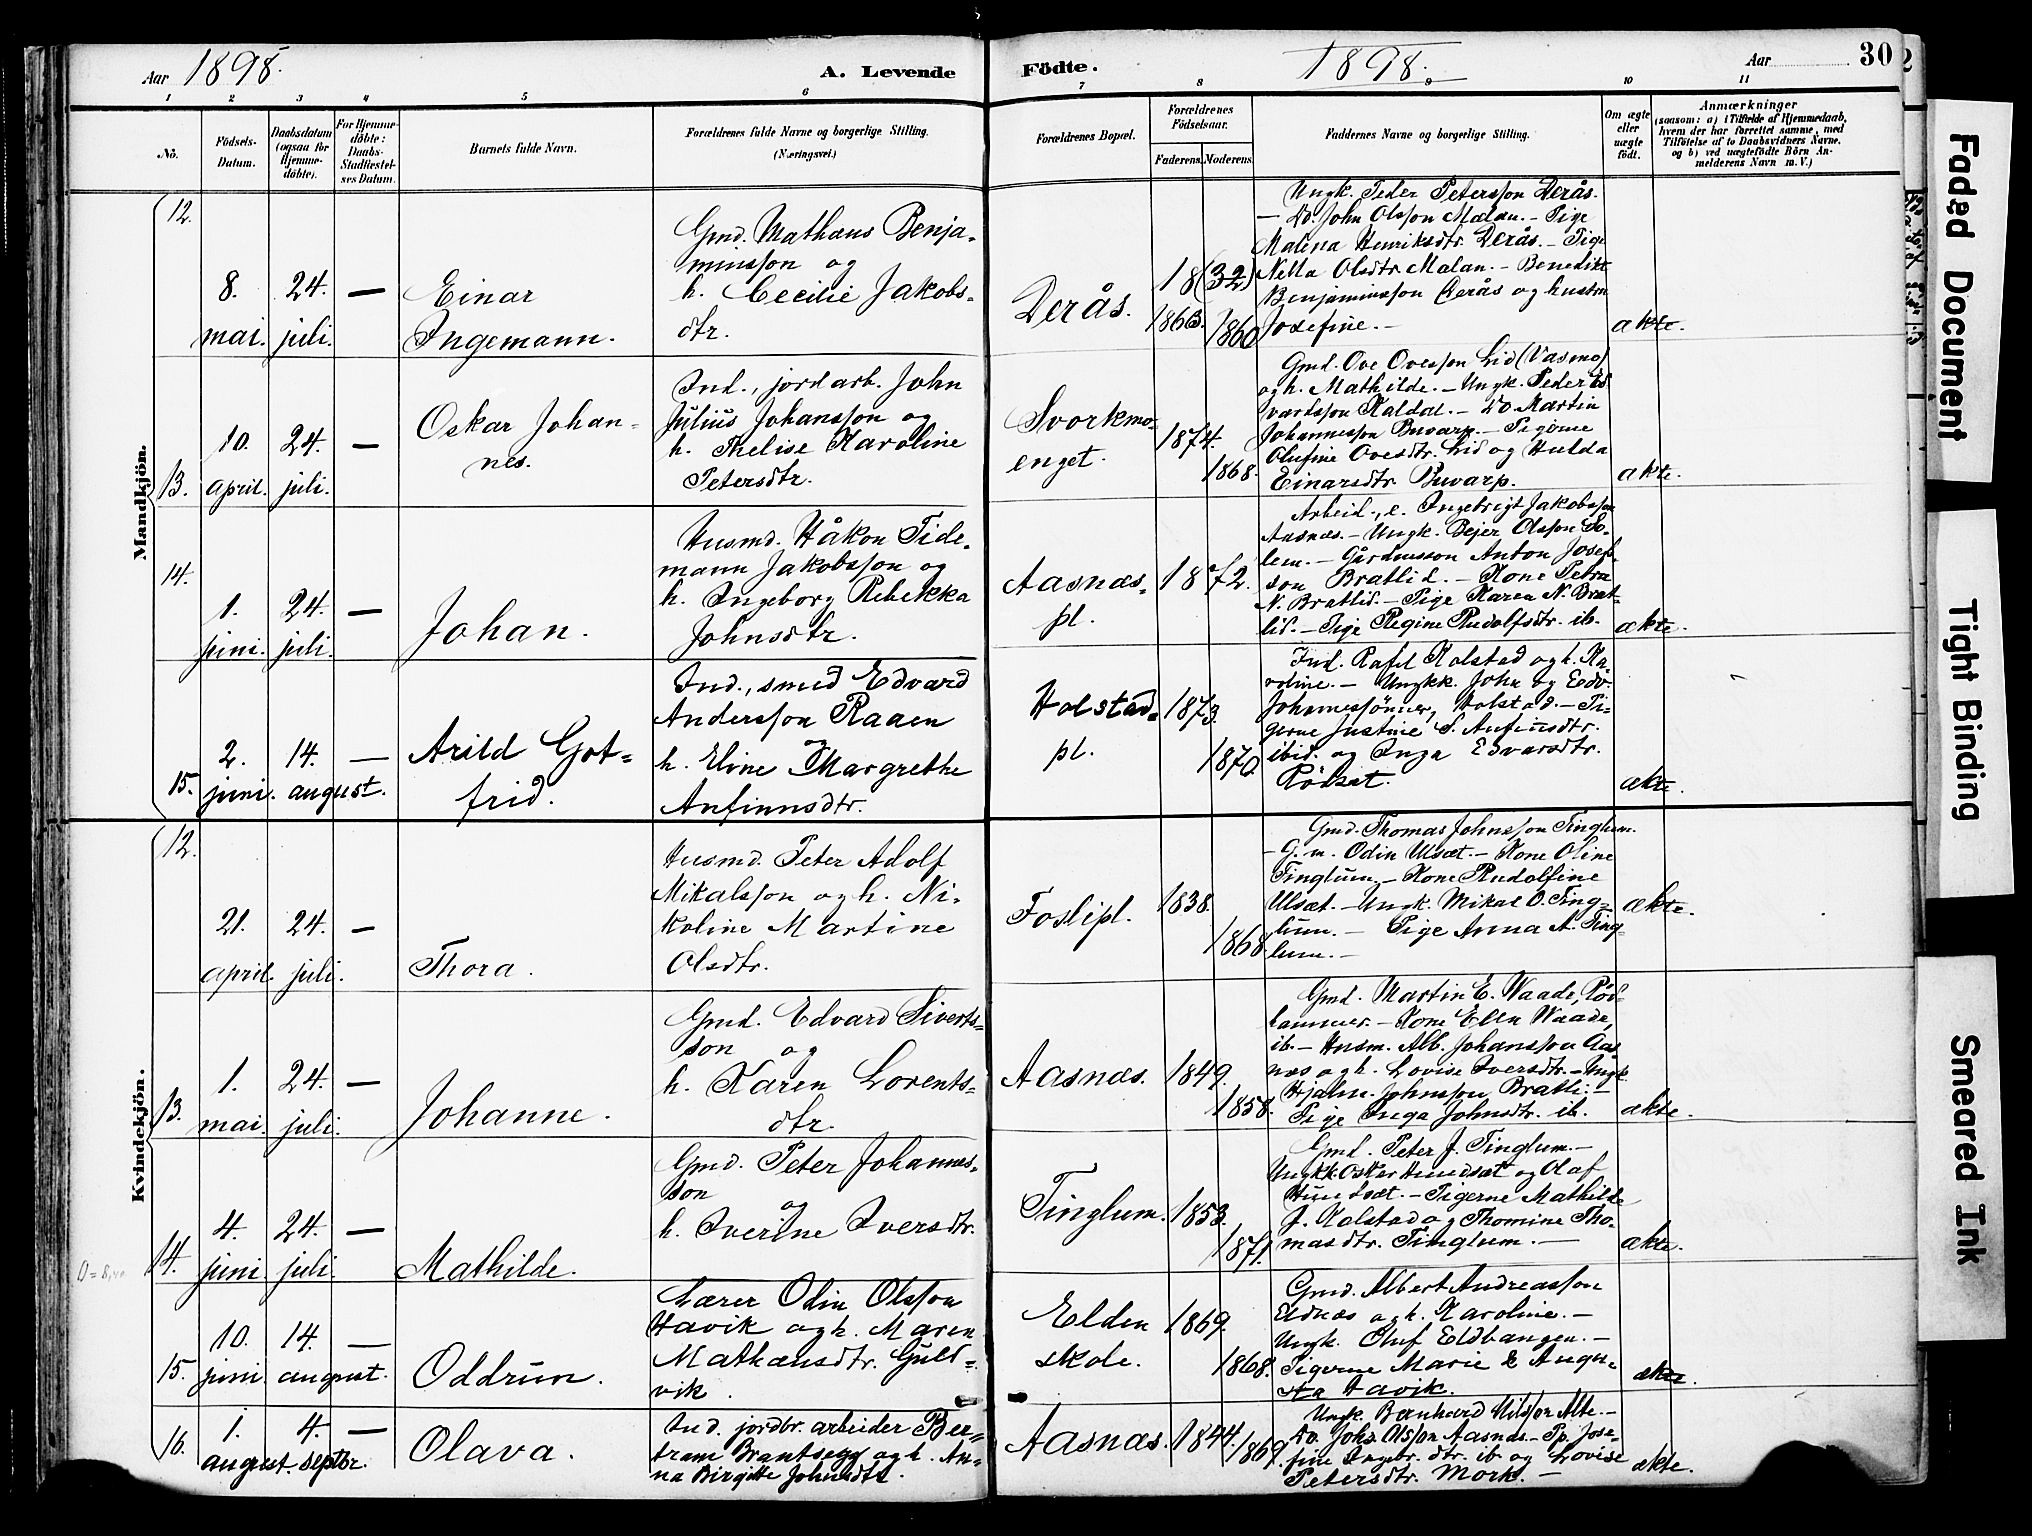 Aar 1898.
A. Levende
Födte.
1898.
Aar
30
1 2 3 4 5 6 7 8 9 10 11
No.
Födsels-
Datum.
Daabsdatum
(ogsaa for
Hjemme-
döbte).
For Hjemme-
döbte:
Daabs-
Stadfæstel-
ses Datum.
Barnets fulde Navn.
Forældrenes fulde Navne og borgerlige Stilling.
(Næringsvei.)
Forældrenes Bopæl.
Forældrenes
Födselsaar.
Faderens. Moderens.
Faddernes Navne og borgerlige Stilling.
Om ægte
eller
uægte
födt.
Anmærkninger
(saasom: a) i Tilfælde af Hjemmedaab,
hvem der har forrettet samme, med
Tilföielse af to Daabsvidners Navne,
og b) ved uægtefödte Börn An-
melderens Navn m. V.)
Mandkjön.
12.
8.
mai.
24.
juli.
—
Einar
Ingemann.
Gmd. Mathæus Benja-
minsson og
h. Cecilie Jakobs-
dtr.
Derås.
18(32)
1863.
1860
Ungk. Peder Petersson Derås.
— Do. John Olsson Malan. — Pige
Malena Henriksdtr. Derås. — Pige
Nella Olsdtr. Malan. — Benedikt
Benjaminsson Derås og hustru
Josefine. —
ækte.
13.
10.
april.
24.
juli.
—
Oskar Johan-
nes.
Ind., jordarb. John
Julius Johansson og
h. Thelise Karoline
Petersdtr.
Svorkmo-
enget.
1874.
1868.
Gmd. Ove Ovesson Lid (Vasmo)
og h. Mathilde. — Ungk. Peder Ed
vardsson Kaldal. — Do. Martin
Johannesson Buvarp. — Pigerne
Olufine Ovesdtr. Lid og Hulda
Einarsdtr. Buvarp.
ækte.
14.
1.
juni.
24.
juli.
—
Johan.
Husmd. Håkon Tide-
mann Jakobsson og
h. Ingeborg Rebekka
Johnsdtr.
Aasnæs-
pl.
1872.
Arbeid., e. Ingebrigt Jakobsson
Aasnæs. — Ungk. Pejer Olsson So-
lem. — Gårdmsson Anton Josefs-
son Bratlid. — Kone Petra
N. Bratlid. — Pige Karen N. Brat-
lid. — Pige Regine Rudolfsdtr. ib.
ækte.
15.
2.
juni.
14.
august.
—
Arild Got-
frid.
Ind., smed Edvard
Andersson Raaen
og
h. Eline Margrethe
Anfinnsdtr.
Holstad-
pl.
1873.
1870.
Ind. Rafel Kolstad og h. Ka-
roline. — Ungkk. John og Edv.
Johannessönner, Holstad. — Pi-
gerne Justine S. Anfinsdtr.
ibid. og Inga Edvarsdtr.
Rödsæt.
ækte.
Kvindekjön.
12.
21.
april.
24.
juli.
—
Thora.
Husmd. Peter Adolf
Mikalsson og h. Ni-
koline Martine
Olsdtr.
Foslipl.
1838.
1868.
Gmd. Thomas Johnsson Tinglum.
— G. m. Odin Ulsæt. — Kone Oline
Tinglum. — Kone Rudolfine
Ulsæt. — Ungk. Mikal O. Ting-
lum. — Pige Anna A. Ting-
lum. —
ækte.
13.
1.
mai.
24.
juli.
—
Johanne.
Gmd. Edvard Siverts-
son og
h. Karen Lorents-
dtr.
Aasnæs.
1849.
1858.
Gmd. Martin E. Waade, Röd-
hammer. — Kone Ellen Waade,
ib. — Husm. Alb. Johansson Aas
næs og h. Lovise Iversdtr. — Ungk.
Hjalm. Johnsson Bratli. —
Pige Inga Johnsdtr. ib.
ækte.
14.
4.
juni
24.
juli.
—
Mathilde.
Gmd. Peter Johannes-
son
og
h. Iverine Iversdtr.
Tinglum.
1853.
1871.
Gmd. Peter J. Tinglum. —
Ungkk. Oskar Hundsæt og Olaf
Hundsæt. — Pigerne Mathilde
J. Kolstad og Thomine Tho-
masdtr. Tinglum. —
ækte.
15.
10.
juni
14.
august.
—
Oddrun.
Lærer Odin Olsson
Havik og h. Maren
Mathæusdtr. Guld-
vik.
Elden
skole.
1869.
1868.
Gmd. Albert Andreasson
Eldnæs og h. Karoline. —
Ungk. Oluf Eldbangen. —
Pigerne Marie & Augu-
sta Havik.
ækte.
16.
1.
august.
4.
septbr.
—
Olava.
Ind. jordbr. arbeider Ber-
tram Brantsegg og h. An-
na Birgitte Johnsdtr.
Aasnæs.
1844.
1869.
Ungk. Bernhard Nilsson Alte. —
Do. Johs Olsson Aasnæs. — Pp. Jose-
fine Ingbr. dtr. ib. og Lovise
Petersdtr. Mork. —
ækte.
Faded Document
Tight Binding
Smeared Ink